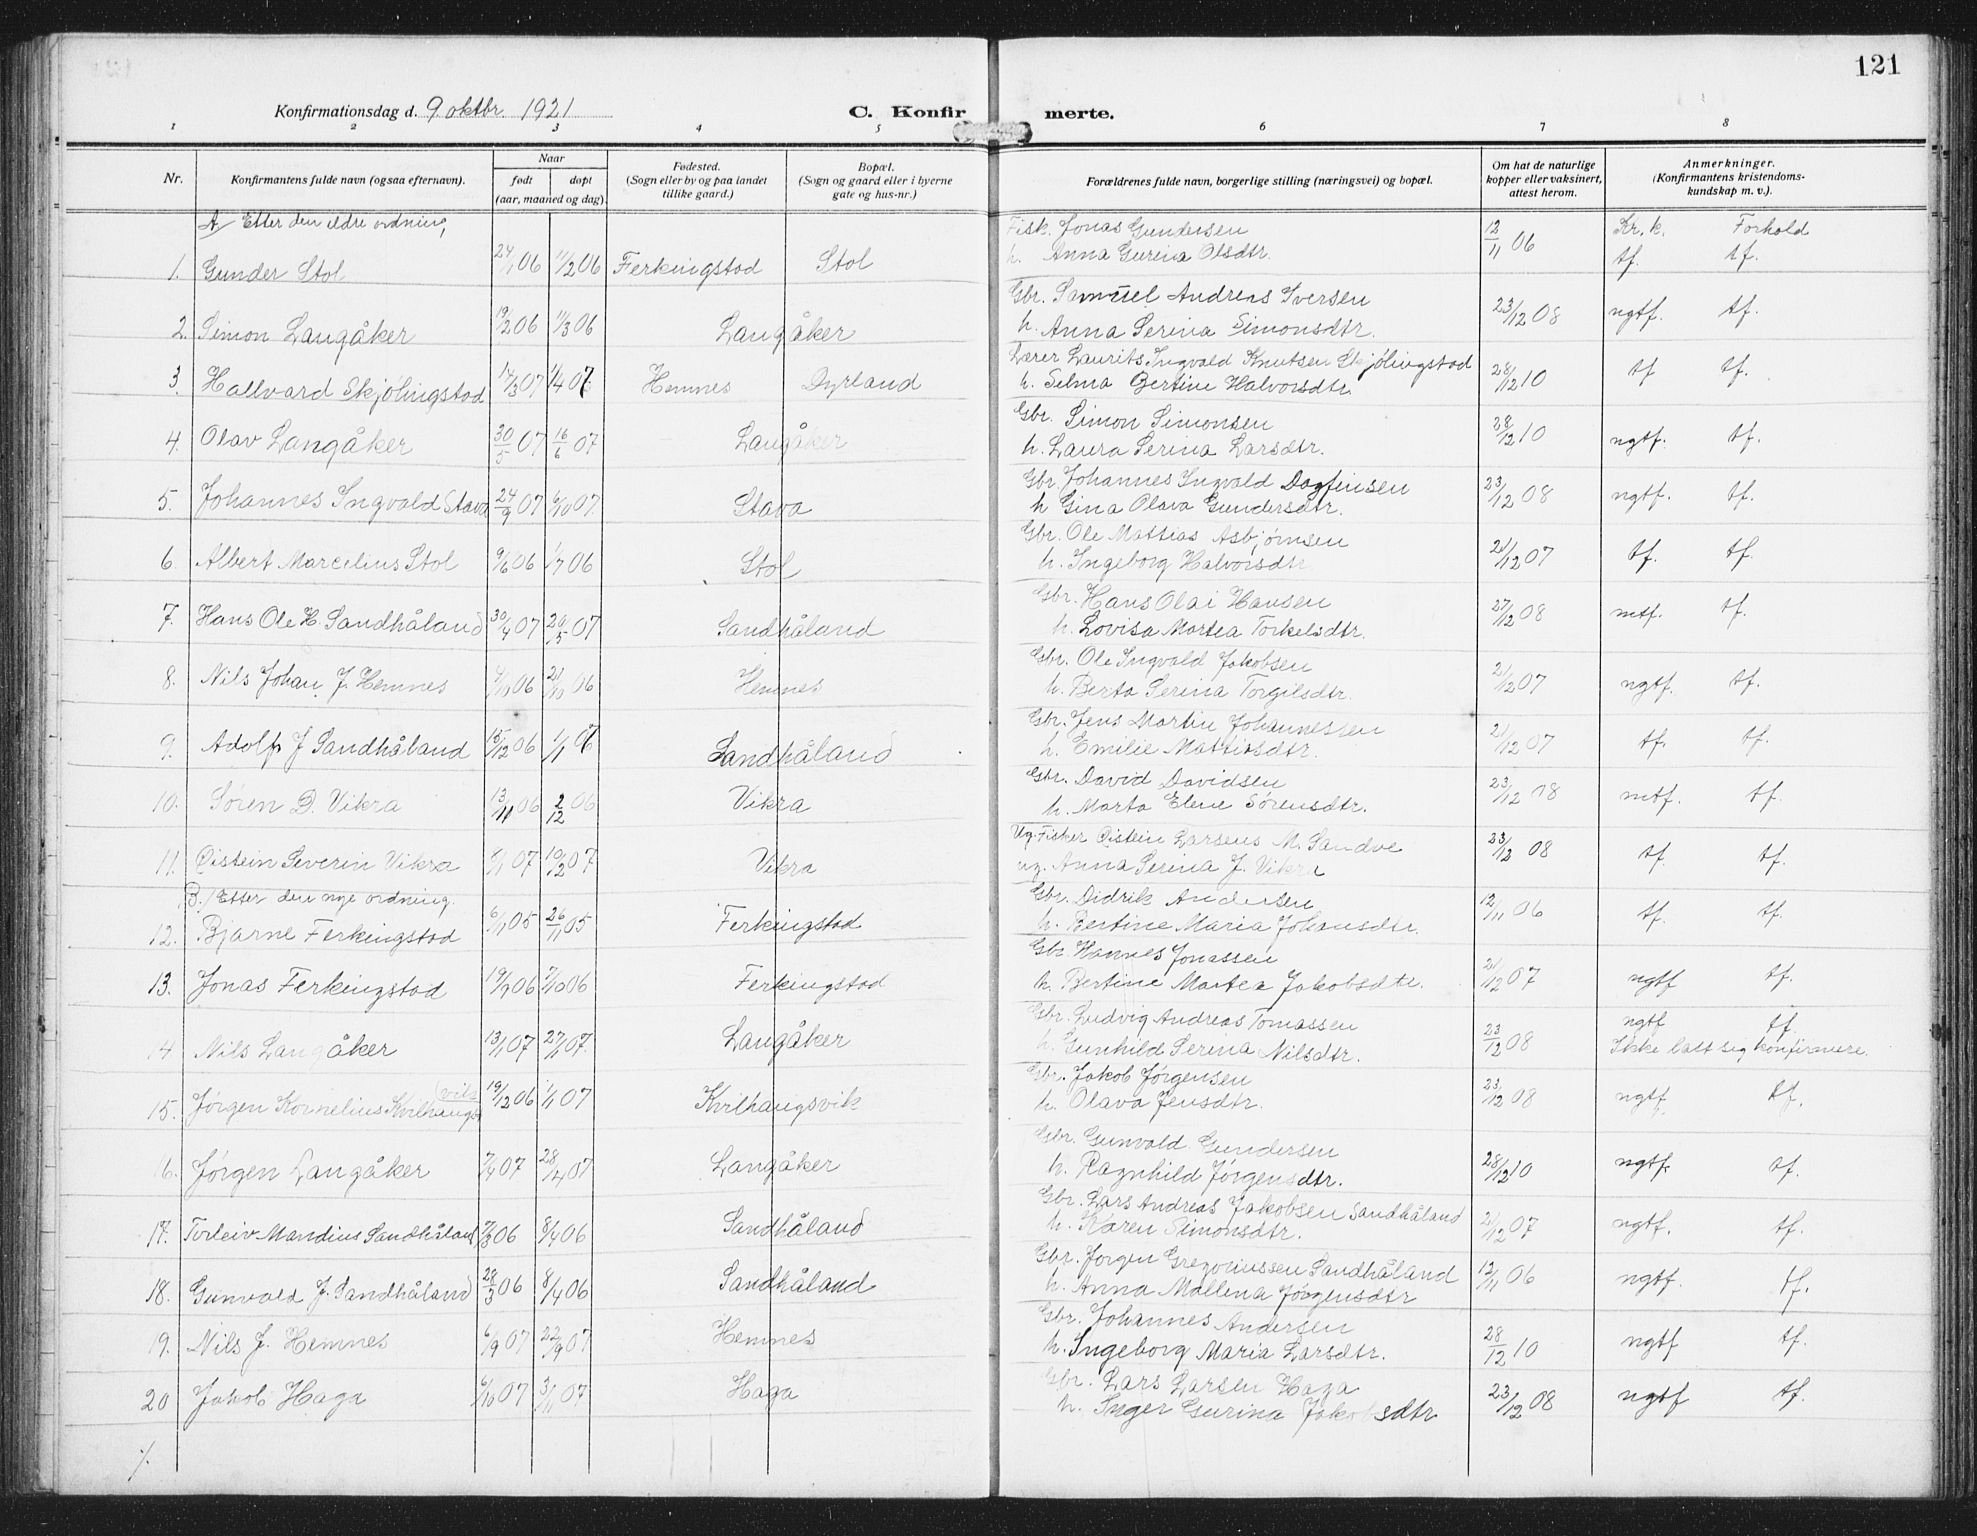 121
Konfirmationsdag d. 9 oktbr 1921
C. Konfirmerte.
1 2 3 4 5 6 7 8
Nr.
Konfirmantens fulde navn (ogsaa efternavn).
Naar
født døpt
(aar, maaned og dag)
Fødested.
(Sogn eller by og paa landet
tillike gaard.)
Bopæl.
(Sogn og gaard eller i byerne
gate og hus-nr.)
Forældrenes fulde navn, borgerlige stilling (næringsvei) og bopæl.
Om hat de naturlige
kopper eller vaksinert,
attest herom.
Anmerkninger.
(Konfirmantens kristendoms-
kundskap m. v.).
A/ Etter den eldre ordning,
Fisk. Jonas Gundersen
Kr. k. Forhold
1. Gunder Stol 24/1 06 11/2 06 Ferkingstad Stol h. Anna Gurina Olsdtr. 12/11 06 tf. tf.
Gbr. Samuel Andreas Iversen
2. Simon Langåker 19/2 06 11/3 06 Langåker h. Anna Serina Simonsdtr. 23/12 08 ngtf. tf.
Lærer Laurits Ingvald Knutsen Skjølingstad
3. Hallvard Skjølingstad 14/3 07 1/4 07 Hemnes Dyrland h. Selma Bertine Halvorsdtr. 28/12 10 tf tf.
Gbr. Simon Simonsen
4. Olav Langåker 30/5 07 16/6 07 Langåker h. Laura Serina Larsdtr. 28/12 10 ngtf. tf.
Gbr. Johannes Ingvald Dagfinsen
5. Johannes Ingvald Stava 24/9 07 6/10 07 Stava h Gina Olava Gundersdtr. 23/12 08 ngtf. tf.
Gbr. Ole Mattias Asbjørnsen
6. Albert Marcelius Stol 9/6 06 1/7 06 Stol h. Ingeborg Halvorsdtr 21/12 07 tf. tf.
Gbr. Hans Olai Hansen
7. Hans Ole H. Sandhåland 30/4 07 20/5 07 Sandhåland h. Lovisa Martea Torkelsdtr. 27/12 08 mtf. tf.
Gbr. Ole Ingvald Jakobsen
8. Nils Johan J. Hemnes 4/11 06 21/11 06 Hemnes h. Berta Serina Torgilsdtr. 21/12 07 ngtf. tf.
Gbr. Jens Martin Johannessen
9. Adolf J Sandhåland 15/12 06 1/1 07 Sandhåland h. Emilie Mattiasdtr. 21/12 07 tf. tf.
Gbr. David Davidsen
10. Søren D. Vikra 13/11 06 2/12 06 Vikra h. Marta Elene Sørensdtr. 23/12 08 mtf. tf.
Ug. Fisker Øistein Larsens M. Sandve
11. Øistein Severin Vikra /1 07 10/2 07 Vikra ug. Anna Serina J. Vikra 23/12 08 tf. tf.
B./ Etter den nye ordning.
Gbr. Didrik Andersen
12. Bjarne Ferkingstad 6/11 05 26/11 05 Ferkingstad h. Bertine Maria Johansdtr. 12/11 06 tf. tf.
Gbr. Hannes Jonassen
13. Jonas Ferkingstad 19/9 06 7/10 06 Ferkingstad h. Bertine Martea Jakobsdtr. 21/12 07 ngtf tf.
Gbr. Ludvig Andreas Tomassen
ngtf tf.
14 Nils Langåker 13/1 07 27/1 07. Langåker h. Gunhild Serina Nilsdtr. 23/12 08 Ikke latt sig konfirmere.
Gbr. Jakob Jørgensen
15. Jørgen Kornelius Kvilhaugsvik 19/12 06 1/1 07 Kvilhaugsvik h. Olava Jensdtr. 23/12 08 ngtf tf.
Gbr. Gunvald Gundersen
16. Jørgen Langåker 7/4 07 28/4 07 Langåker h. Ragnhild Jørgensdtr. 28/12 10 ngtf. tf.
Gbr. Lars Andreas Jakobsen Sandhåland
17. Torleiv Mandius Sandhåland 7/3 06 8/4 06 Sandhåland h. Karen Simonsdtr. 21/12 07 ngtf. tf.
Gbr. Jørgen Gregoriussen Sandhåland
18. Gunvald J. Sandhåland 28/3 06 8/4 06 Sandhåland h. Anna Mallena Jørgensdtr 12/11 06 ngtf. tf.
Gbr. Johannes Andersen
19. Nils J. Hemnes 6/9 07 22/9 07 Hemnes h. Ingeborg Maria Larsdtr. 28/12 10 ngtf tf.
Gbr. Lars Larsen Haga
20 Jakob Haga 6/10 07 3/11 07 Haga h. Inger Gurina Jakobsdtr 23/12 08 ngtf tf.